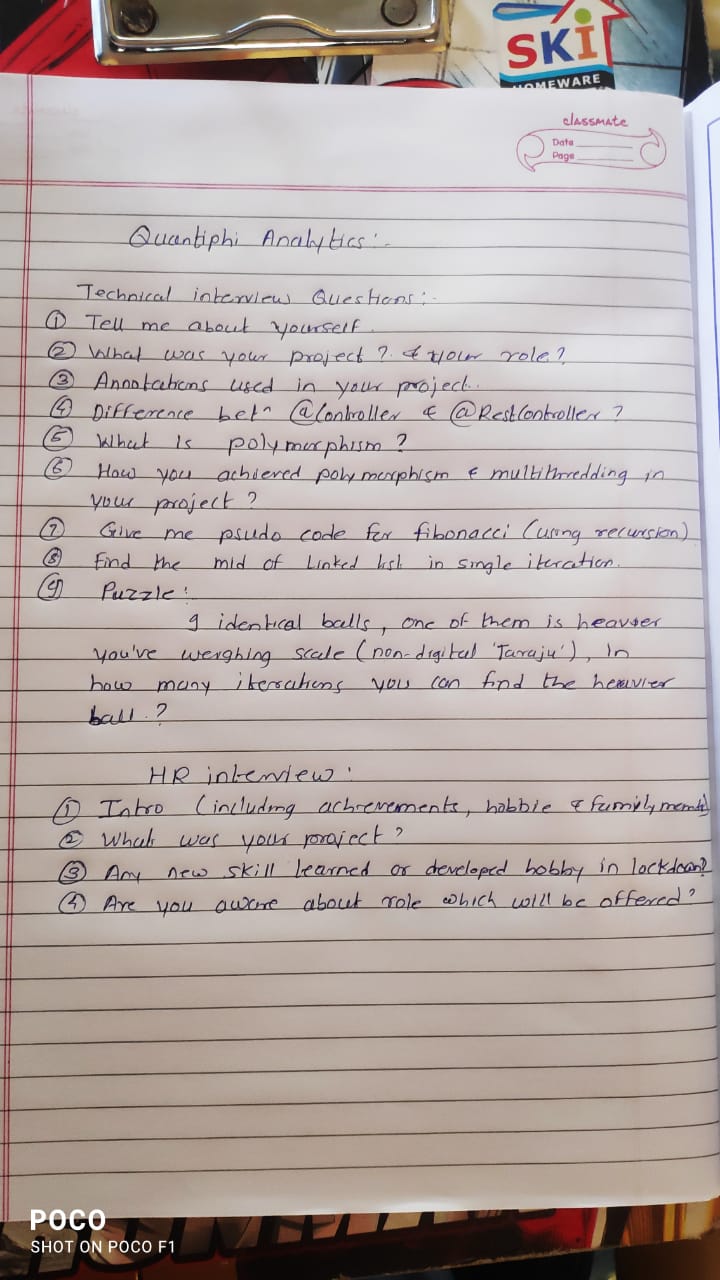 SKI
HOMEWARE
classmate
Date
Page
Quantiphi Analytics:-
Technical interview Questions:-
① Tell me about yourself.
② What was your project? & your role?
③ Annotations used in your project..
④ Difference betn @Controller & @RestController?
⑤ What is polymorphism?
⑥ How you achieved polymorphism & multithredding in
your project?
⑦ Give me psudo code for fibonacci (using recursion)
⑧ Find the mid of Linked list in single iteration.
⑨ Puzzle:
9 identical balls, one of them is heavier
you've weighing scale (non-digital 'Taraju'), In
how many iterations you can find the heavier
ball.?
HR interview:
① Intro (including achievements, hobbie & family
② What was your project?
③ Any new skill learned or developed hobby in lockdown?
④ Are you aware about role which will be offered?
POCO
SHOT ON POCO F1